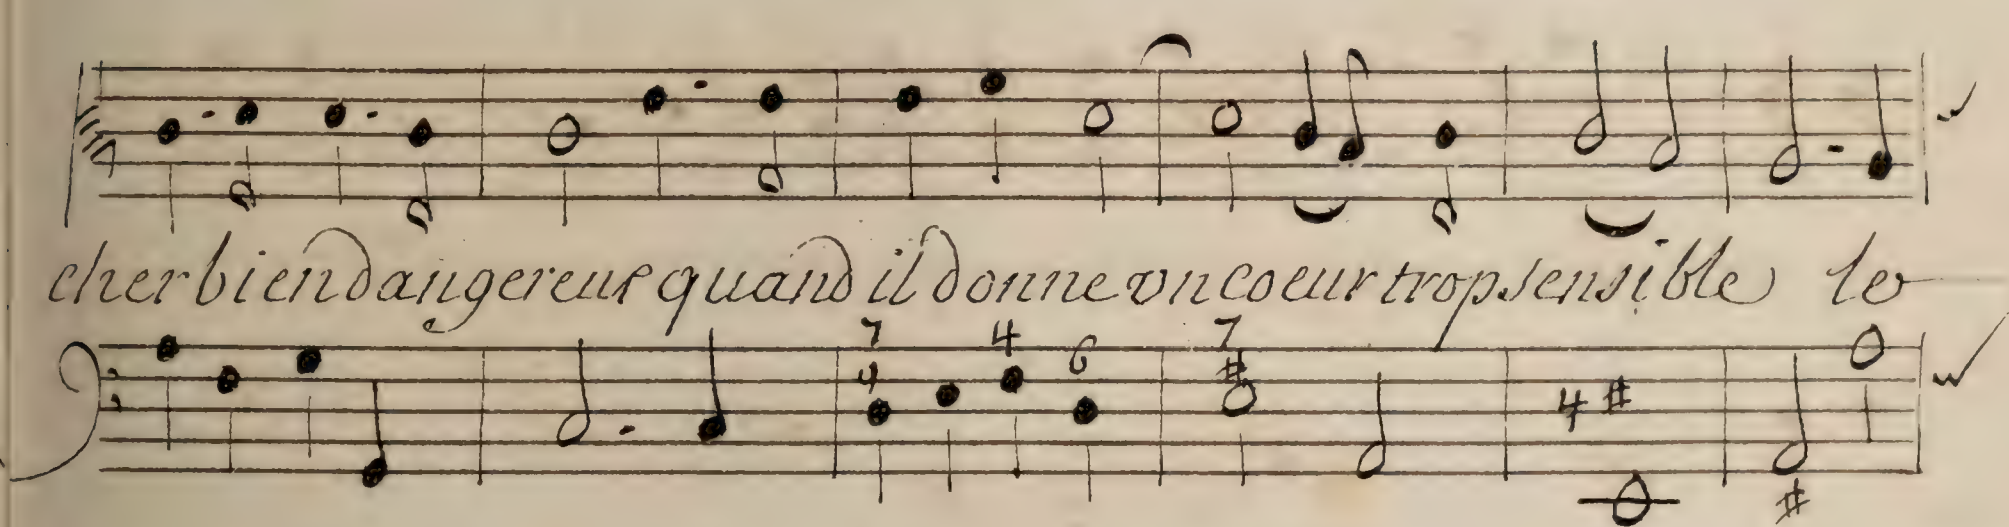 cher bien dangereux quand il donne vn coeur trop sensible le
7 4 4 6 7 # 4 # #